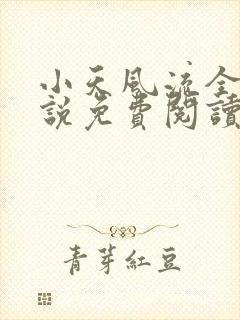 小天風流全
說免費閱讀
青芽紅豆